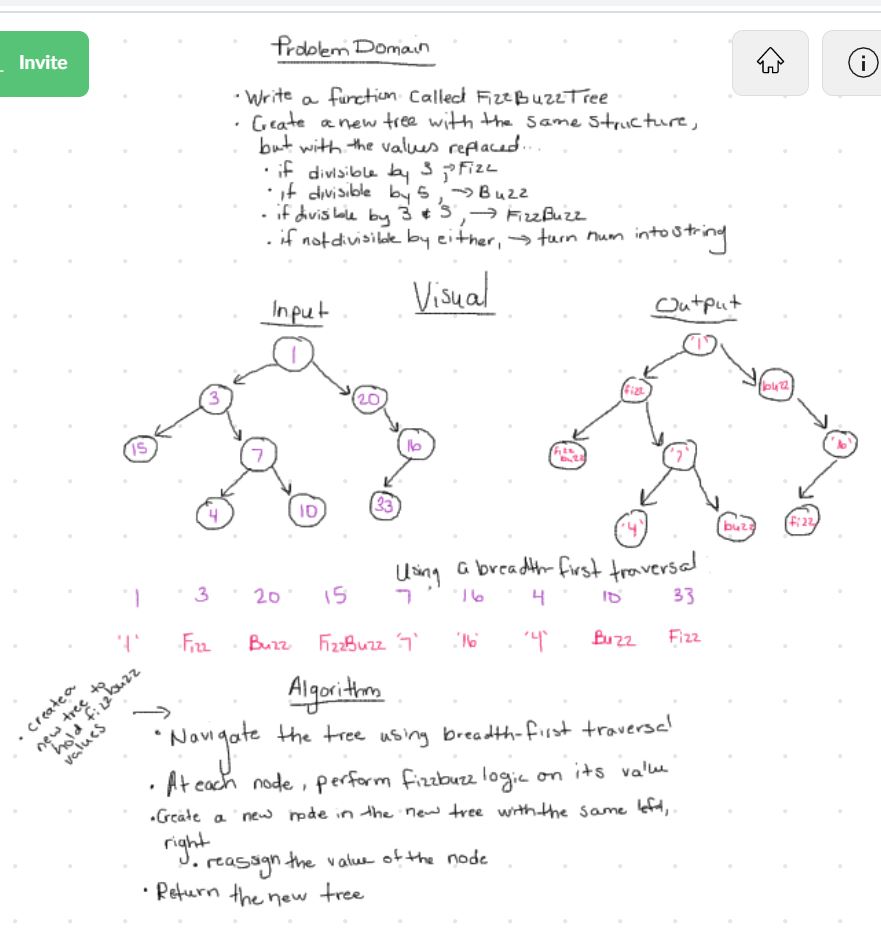 Invite
Problem Domain
• Write a function called FizzBuzzTree
• Create a new tree with the same structure,
but with the values replaced...
• if divisible by 3, → Fizz
• if divisible by 5, → Buzz
• if divisible by 3 & 5, → FizzBuzz
• if not divisible by either, → turn num into string
Visual
Input
1
3
20
15
7
16
4
10
33
Output
'1'
fizz
buzz
Fizz
buzz
'7'
'16'
'4'
buzz
fizz
Using a breadth-first traversal
1 3 20 15 7 16 4 10 33
'1' Fizz Buzz FizzBuzz '7' '16' '4' Buzz Fizz
Algorithm
• create a
new tree to
hold fizzbuzz
values
→
• Navigate the tree using breadth-first traversal
• At each node, perform fizzbuzz logic on its value
• Create a new node in the new tree with the same left,
right
• reassign the value of the node
• Return the new tree